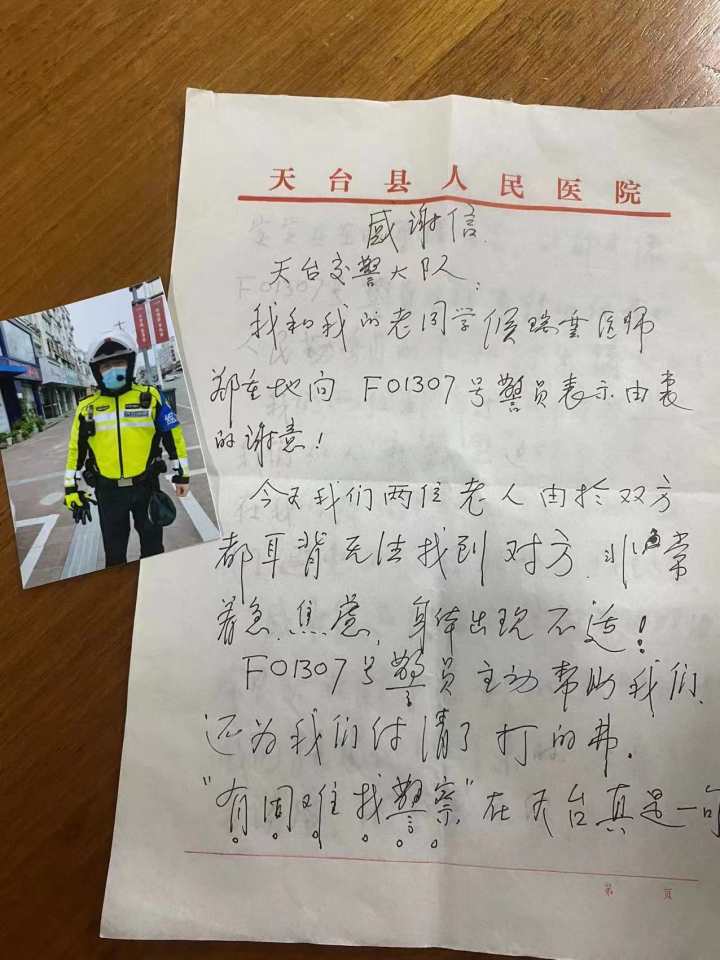 天台县人民医院
感谢信
天台交警大队:
我和我的老同学侯瑞垂医师
郑重地向F01307号警员表示由衷
的谢意!
今天我们两位老人由於双方
都耳背无法找到对方.非常
着急.焦虑,身体出现不适!
F01307号警员主动帮助我们.
还为我们付清了打的费.
"有困难找警察"在天台真是一句
第 页